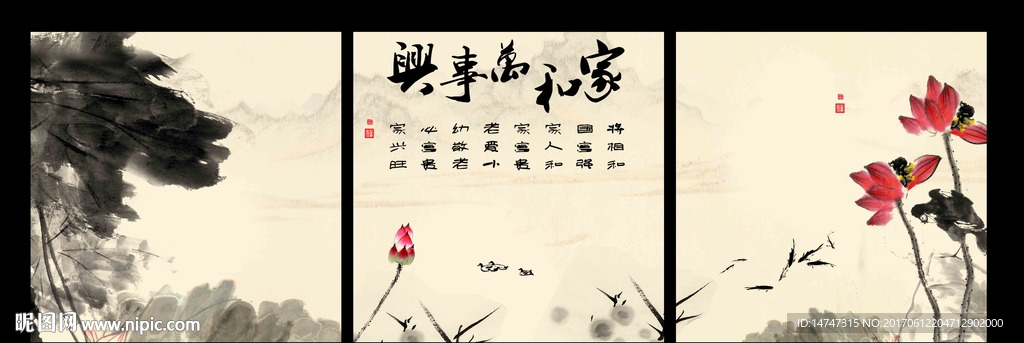 家和萬事興
将相和
國富强
家人和
家富贵
老爱小
幼敬老
心富贵
家兴旺
昵图网 www.nipic.com
ID:14747315 NO:20170612204712902000